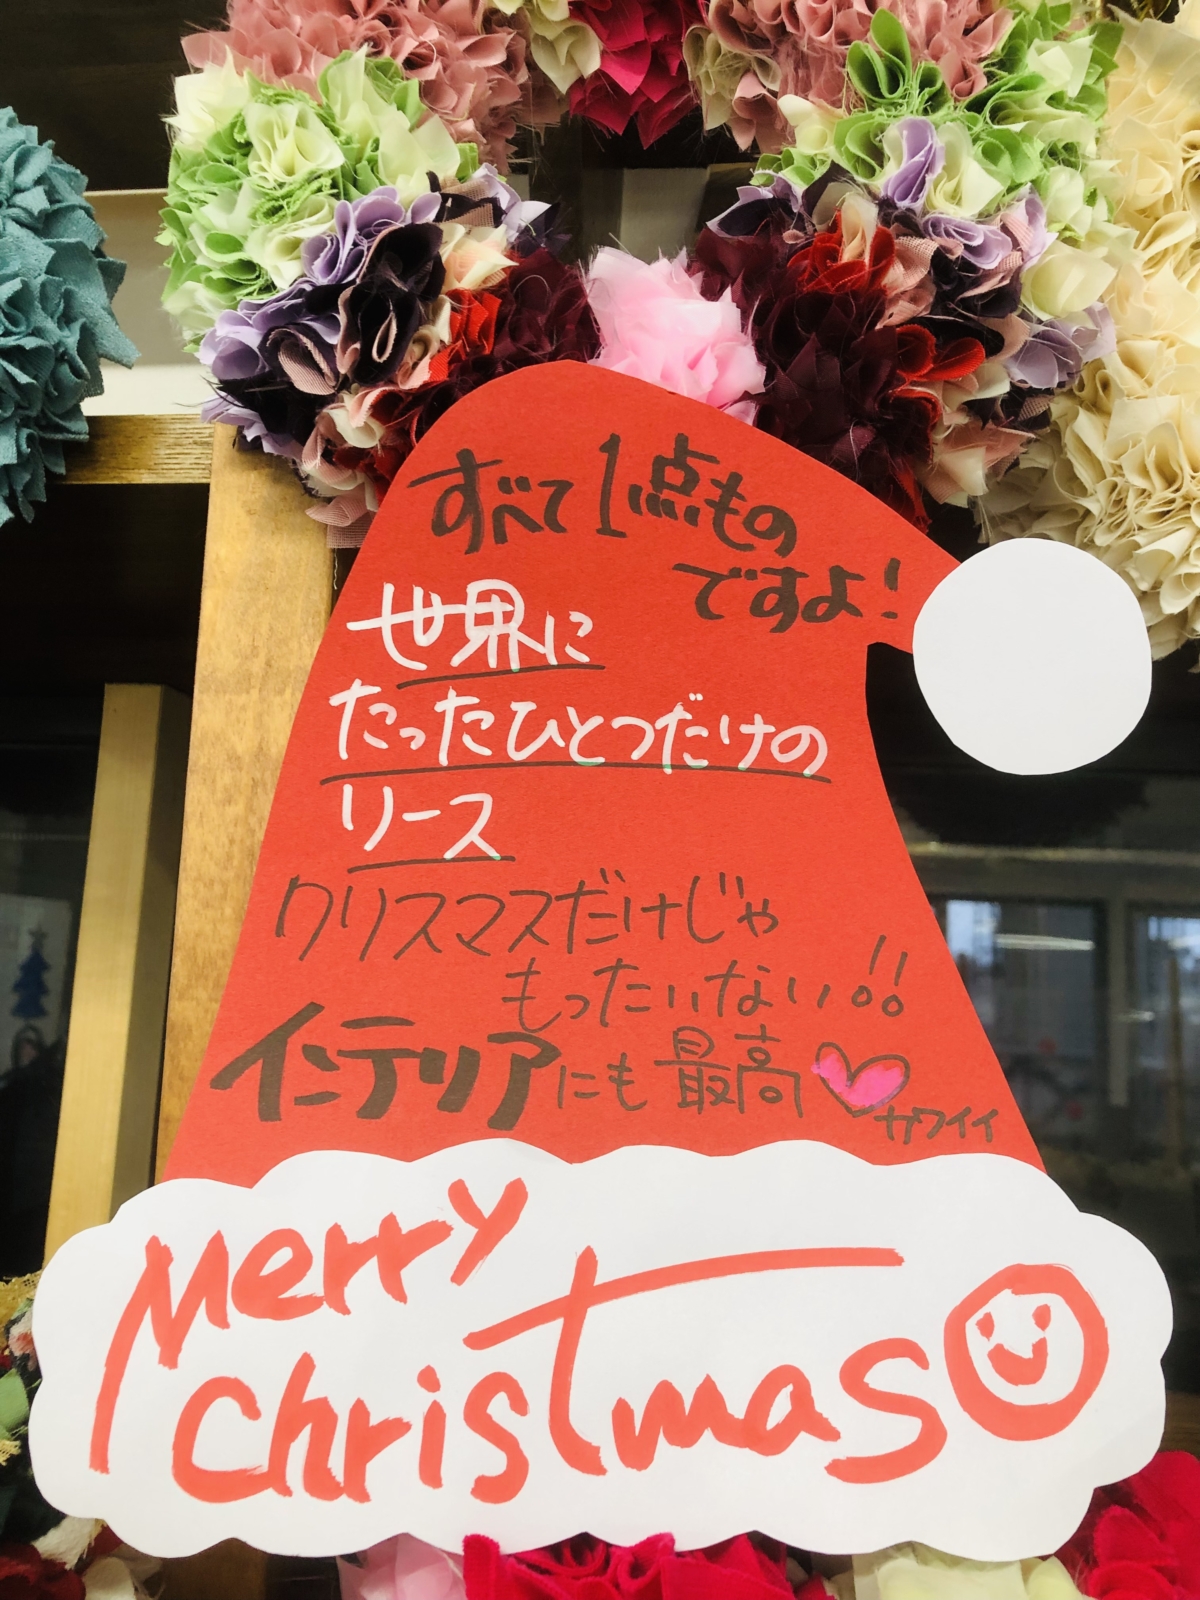 すべて1点もの
ですよ!
世界に
たったひとつだけの
リース
クリスマスだけじゃ
もったいない!!
インテリアにも最高
カワイイ
Merry
christmas